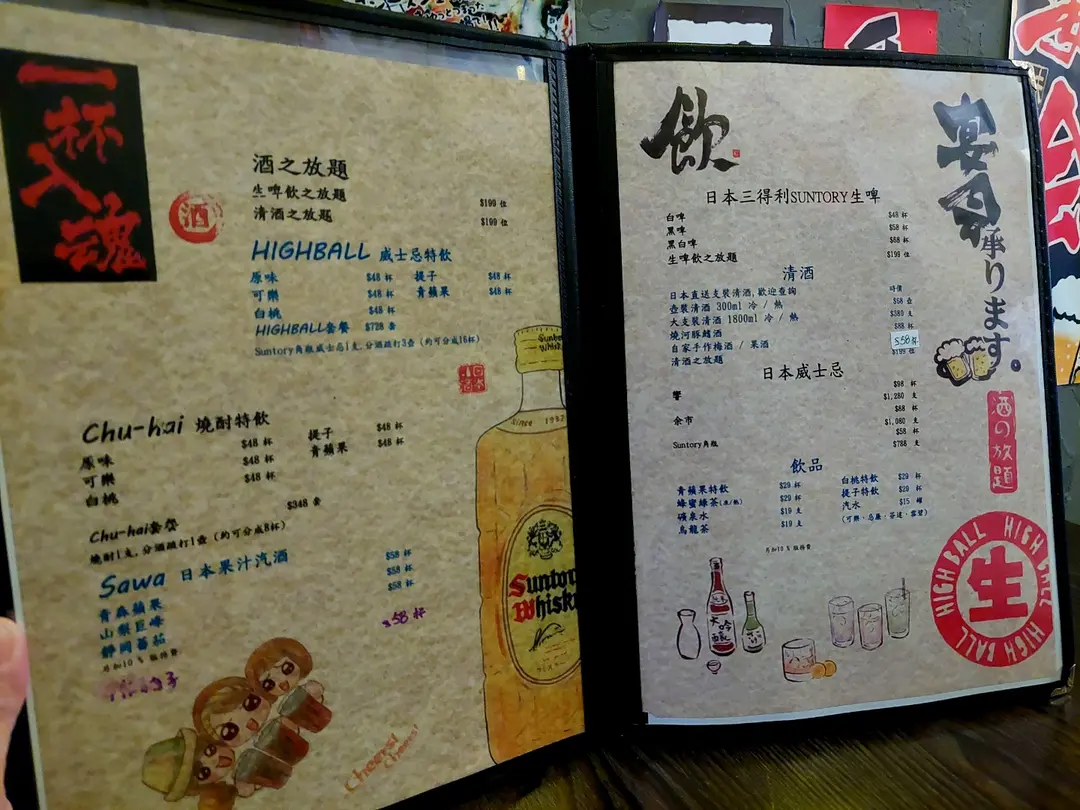 一杯入魂
酒
酒之放題
生啤飲之放題 $199 位
清酒之放題 $199 位
HIGHBALL 威士忌特飲
原味 $48 杯 提子 $48 杯
可樂 $48 杯 青蘋果 $48 杯
白桃 $48 杯
HIGHBALL套餐 $728 套
Suntory角瓶威士忌1支,分酒蘇打3壺 (約可分成16杯)
Chu-hai 燒酎特飲
原味 $48 杯 提子 $48 杯
可樂 $48 杯 青蘋果 $48 杯
白桃 $48 杯
Chu-hai套餐 $348 套
燒酎1支,分酒蘇打1壺 (約可分成8杯)
Sawa 日本果汁汽酒
青森蘋果 $58 杯
山梨巨峰 $58 杯
靜岡蕃茄 $58 杯
另加10% 服務費
$58 杯
Cheers!
Cheers!
since 1937
Suntory
Whisky
飲
日本三得利SUNTORY生啤
白啤 $48 杯
黑啤 $58 杯
黑白啤 $68 杯
生啤飲之放題 $199 位
清酒
日本直送支裝清酒,歡迎查詢 時價
壺裝清酒 300ml 冷 / 熱 $68 壺
大支裝清酒 1800ml 冷 / 熱 $380 支
燒河豚鰭酒 $88 杯
自家手作梅酒 / 果酒 $58 杯
清酒之放題 $199 位
日本威士忌
響 $98 杯
$1,280 支
余市 $88 杯
$1,080 支
Suntory角瓶 $58 杯
$788 支
飲品
青蘋果特飲 $29 杯 白桃特飲 $29 杯
蜂蜜綠茶(凍/熱) $29 杯 提子特飲 $29 杯
礦泉水 $19 支 汽水 $15 罐
烏龍茶 $19 支
另加10% 服務費
宴会承ります。
酒の放題
大吟醸
HIGH BALL HIGH BALL HIGH BALL HIGH BALL
生